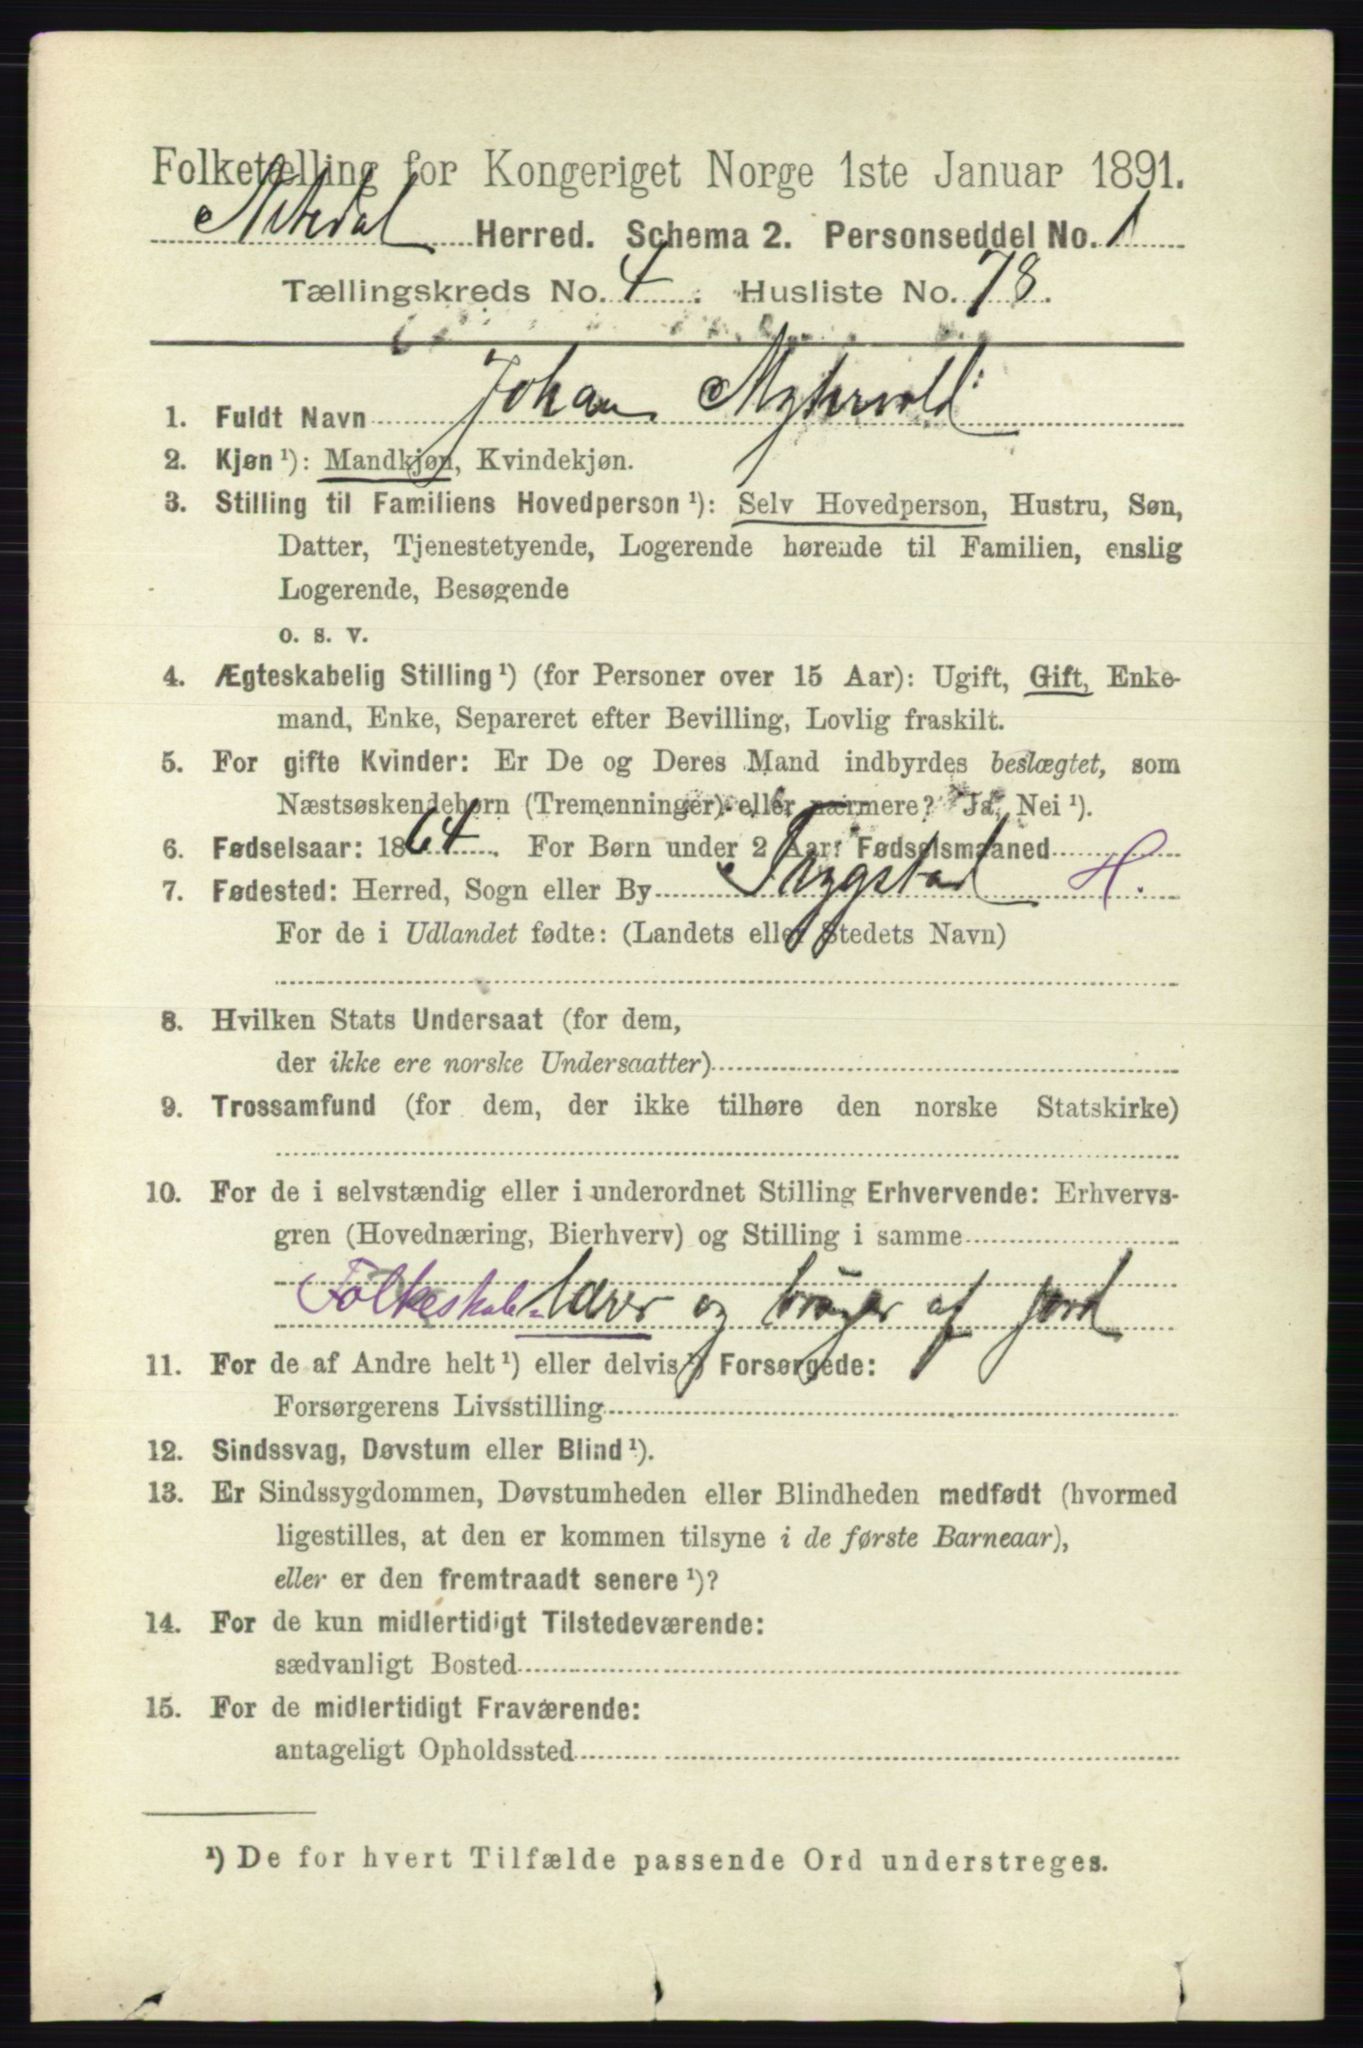 Folketælling for Kongeriget Norge 1ste Januar 1891.
Nitedal Herred. Schema 2. Personseddel No. 1
Tællingskreds No. 4. Husliste No. 78.
1. Fuldt Navn Johan Myhrvold
2. Kjøn ¹): Mandkjøn, Kvindekjøn.
3. Stilling til Familiens Hovedperson ¹): Selv Hovedperson, Hustru, Søn,
Datter, Tjenestetyende, Logerende hørende til Familien, enslig
Logerende, Besøgende
o. s. v.
4. Ægteskabelig Stilling ¹) (for Personer over 15 Aar): Ugift, Gift, Enke-
mand, Enke, Separeret efter Bevilling, Lovlig fraskilt.
5. For gifte Kvinder: Er De og Deres Mand indbyrdes beslægtet, som
Næstsøskendebørn (Tremenninger) eller nærmere? Ja, Nei ¹).
6. Fødselsaar: 1864. For Børn under 2 Aar: Fødselsmaaned
7. Fødested: Herred, Sogn eller By Trygstad H.
For de i Udlandet fødte: (Landets eller Stedets Navn)
8. Hvilken Stats Undersaat (for dem,
der ikke ere norske Undersaatter)
9. Trossamfund (for dem, der ikke tilhøre den norske Statskirke)
10. For de i selvstændig eller i underordnet Stilling Erhvervende: Erhvervs-
gren (Hovednæring, Bierhverv) og Stilling i samme
Folkeskole-lærer og bruger af jord
11. For de af Andre helt ¹) eller delvis ¹) Forsørgede:
Forsørgerens Livsstilling
12. Sindssvag, Døvstum eller Blind ¹).
13. Er Sindssygdommen, Døvstumheden eller Blindheden medfødt (hvormed
ligestilles, at den er kommen tilsyne i de første Barneaar),
eller er den fremtraadt senere ¹)?
14. For de kun midlertidigt Tilstedeværende:
sædvanligt Bosted
15. For de midlertidigt Fraværende:
antageligt Opholdssted
¹) De for hvert Tilfælde passende Ord understreges.